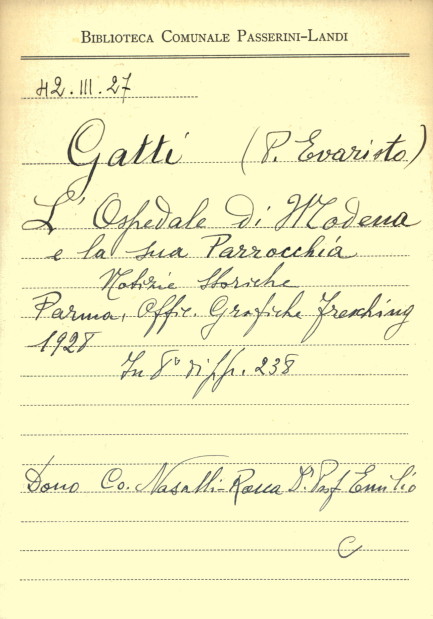 BIBLIOTECA COMUNALE PASSERINI-LANDI
42.III.27
Gatti (P. Evaristo)
L'Ospedale di Modena
e la sua Parrocchia
Notizie storiche
Parma, Offic. Grafiche Fresching
1928
In 8° di pp. 238
Dono Co. Nasalli-Rocca Dr. Prof Emilio
C